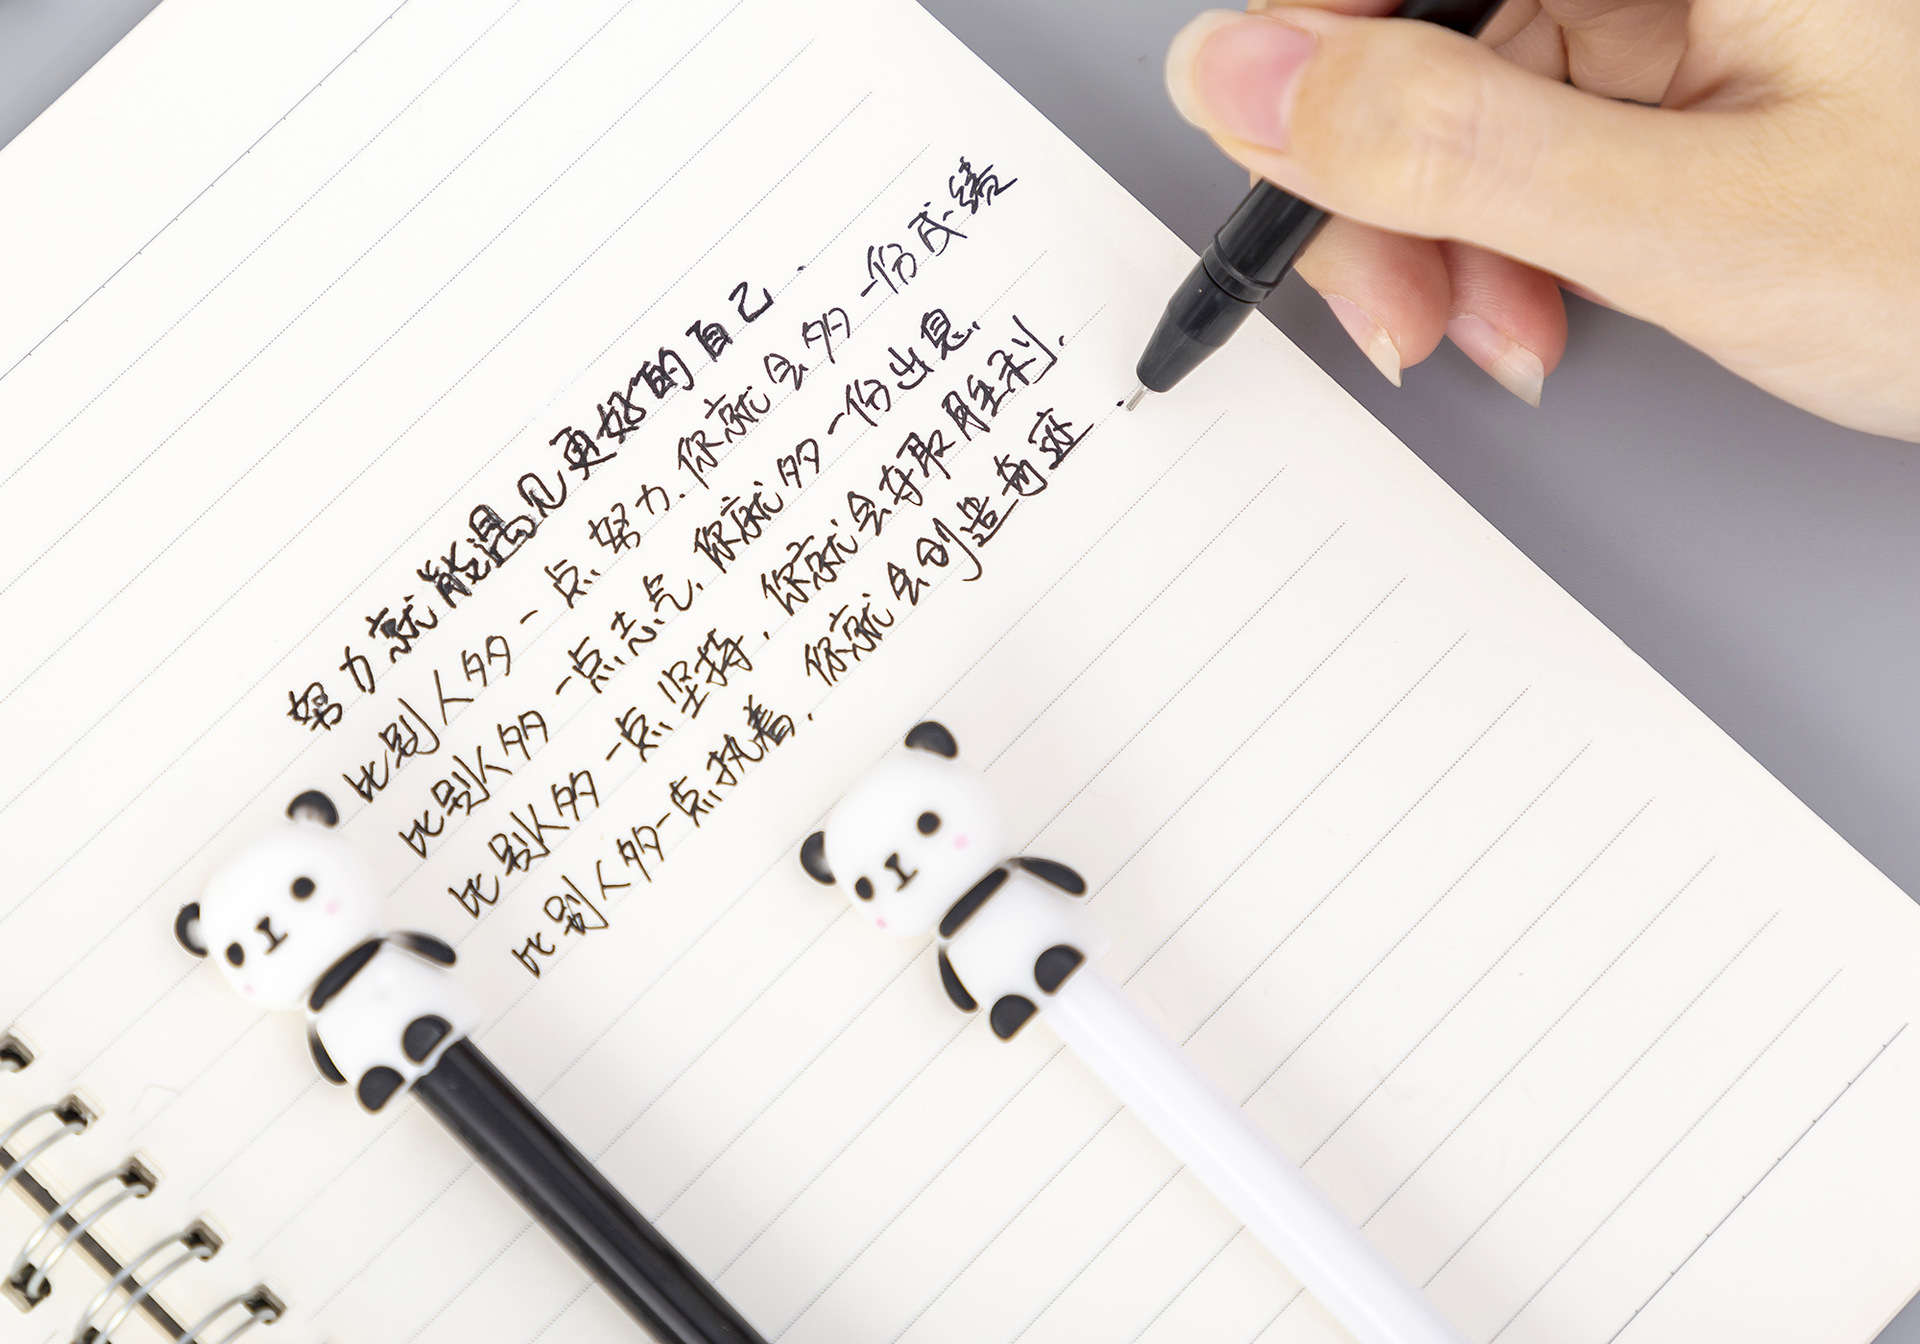 努力就能遇见更好的自己.
比别人多一点努力.你就会多一份成绩
比别人多一点志气,你就多一份出息.
比别人多一点坚持,你就会夺取胜利.
比别人多一点执着.你就会创造奇迹